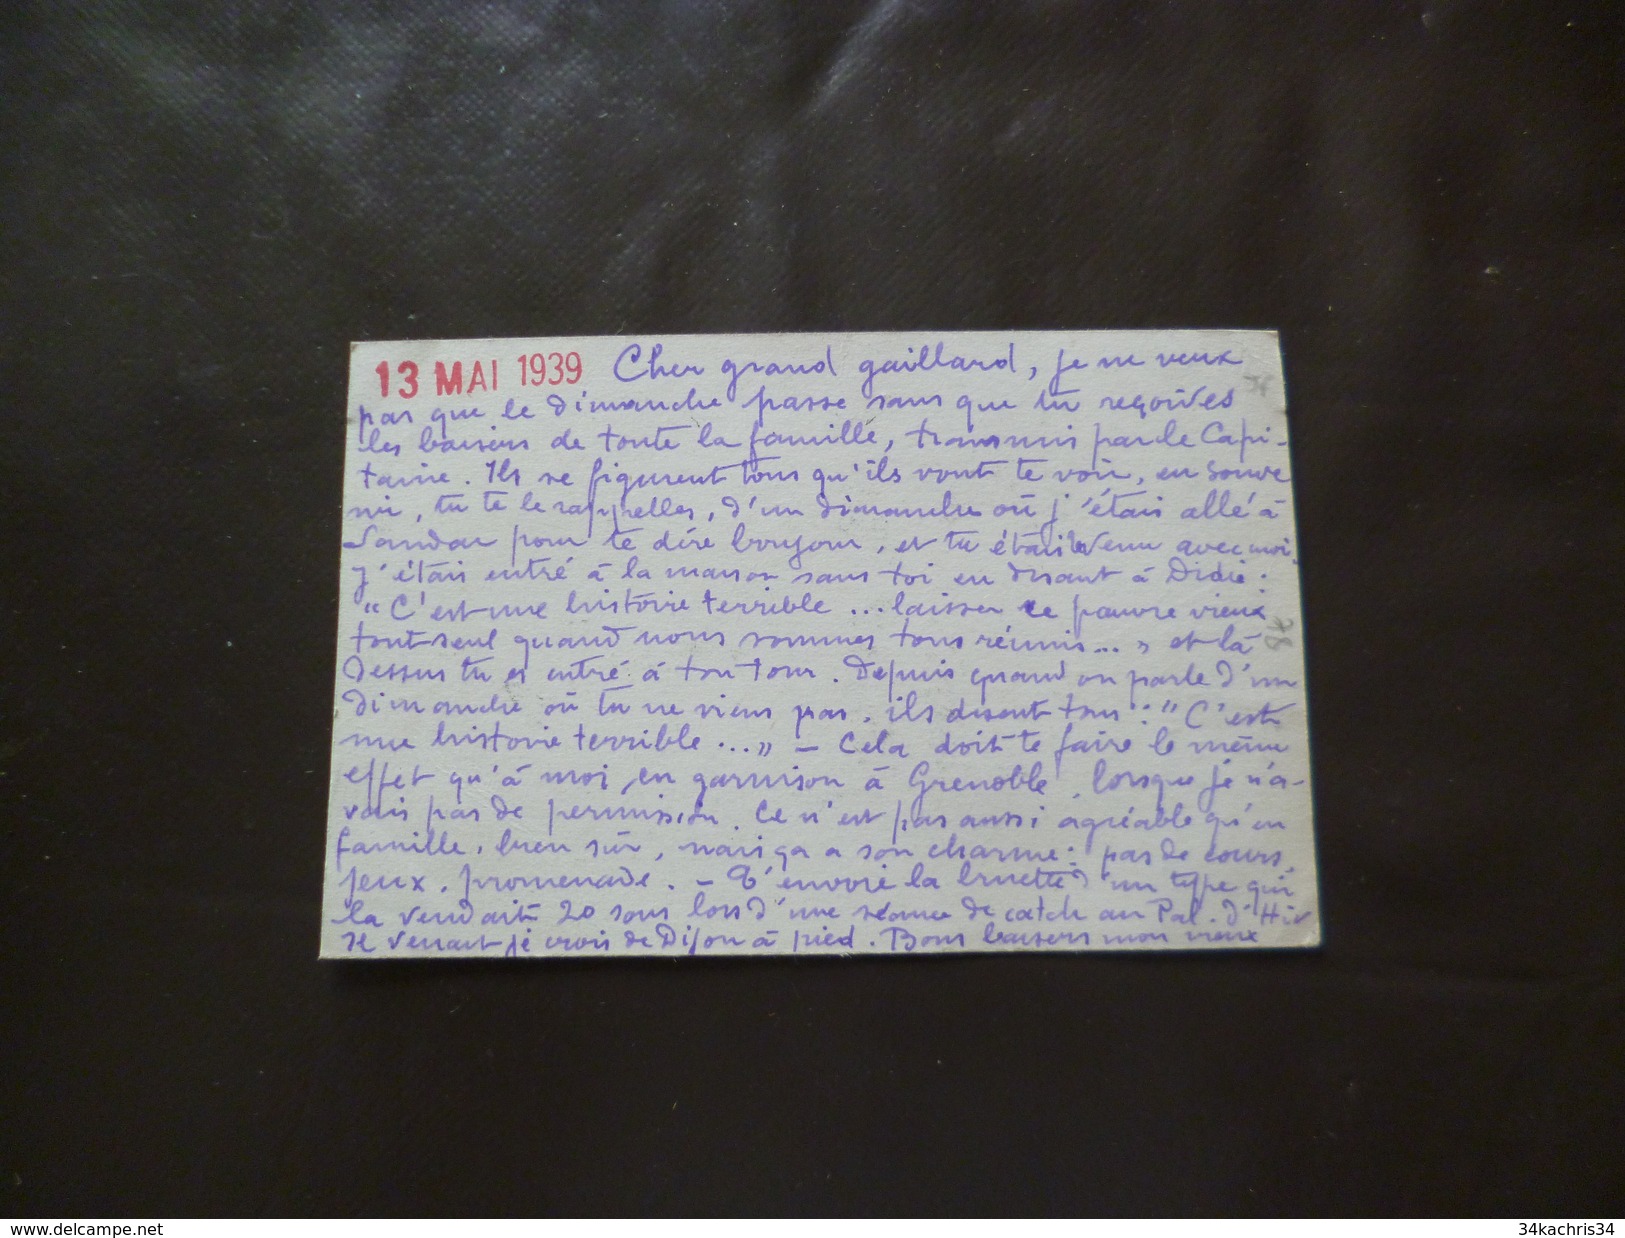 13 MAI 1939 Cher grand gaillard, je ne veux
pas que le dimanche passe sans que tu reçoives
les baisers de toute la famille, transmis par le Capi-
taine. Ils se figurent tous qu'ils vont te voir, en souve
nir, tu te le rappelles, d'un dimanche où j'étais allé à
pour te dire bonjour, et tu étais venu avec moi
J'étais entré à la maison sans toi en disant à Didie :
"C'est une histoire terrible ... laisser ce pauvre vieux
tout seul quand nous sommes tous réunis..." et là
dessus tu es entré à ton tour. Depuis quand on parle d'un
dimanche où tu ne viens pas, ils disent tous : "C'est
une histoire terrible ..." – Cela doit te faire le même
effet qu'à moi, en garnison à Grenoble, lorsque je n'a-
vais pas de permission. Ce n'est pas aussi agréable qu'en
famille, bien sûr, mais ça a son charme : pas de cours,
jeux, promenade. – T'envoie la binette d'un type qui
la vendait 20 sous lors d'une séance de catch au Pal. d'Hiv
se venant je crois de Dijon à pied. Bons baisers mon vieux
www.delcampe.net
34kachris34